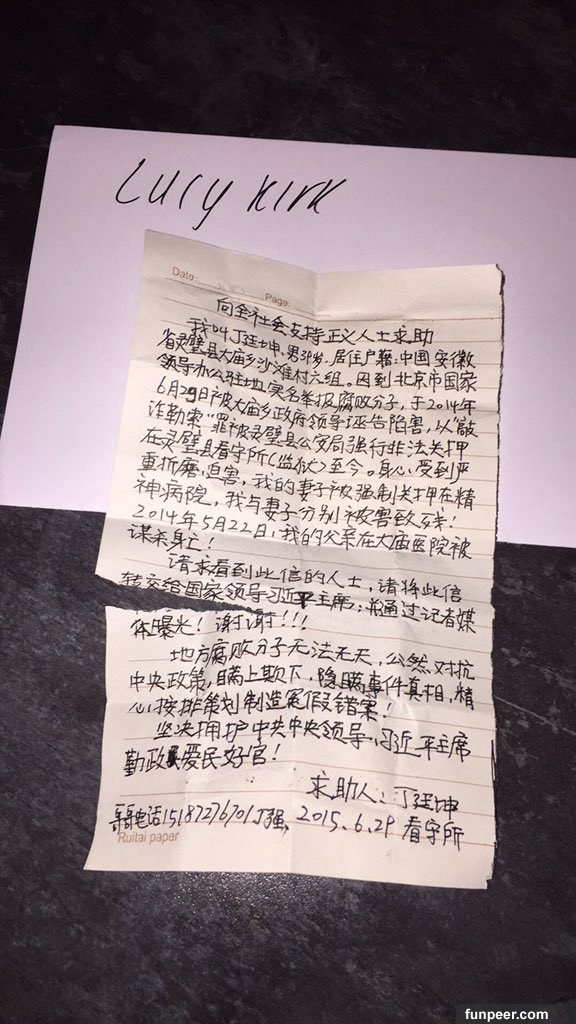 Lucy Kirk
Date:
Page:
向全社会支持正义人士求助
我叫丁廷坤、男39岁、居住户籍:中国安徽
省灵璧县大庙乡沙滩村六组。因到北京市国家
领导办公驻地实名举报腐败分子,于2014年
6月29日被大庙乡政府领导诬告陷害,以“敲
诈勒索”罪被灵璧县公安局强行非法关押
在灵璧县看守所(监狱)至今。身心受到严
重折磨、迫害,我的妻子被强制关押在精
神病院,我与妻子分别被害致残!
2014年5月22日,我的父亲在大庙医院被
谋杀身亡!
请求看到此信的人士,请将此信
转交给国家领导习近平主席;并通过记者媒
体曝光!谢谢!!!
地方腐败分子无法无天,公然对抗
中央政策,瞒上欺下,隐瞒事件真相,精
心按排策划制造冤假错案!
坚决拥护中共中央领导,习近平主席
勤政爱民好官!
求助人:丁廷坤
哥哥电话15187276701丁强、2015.6.29 看守所
Ruitai paper
funpeer.com